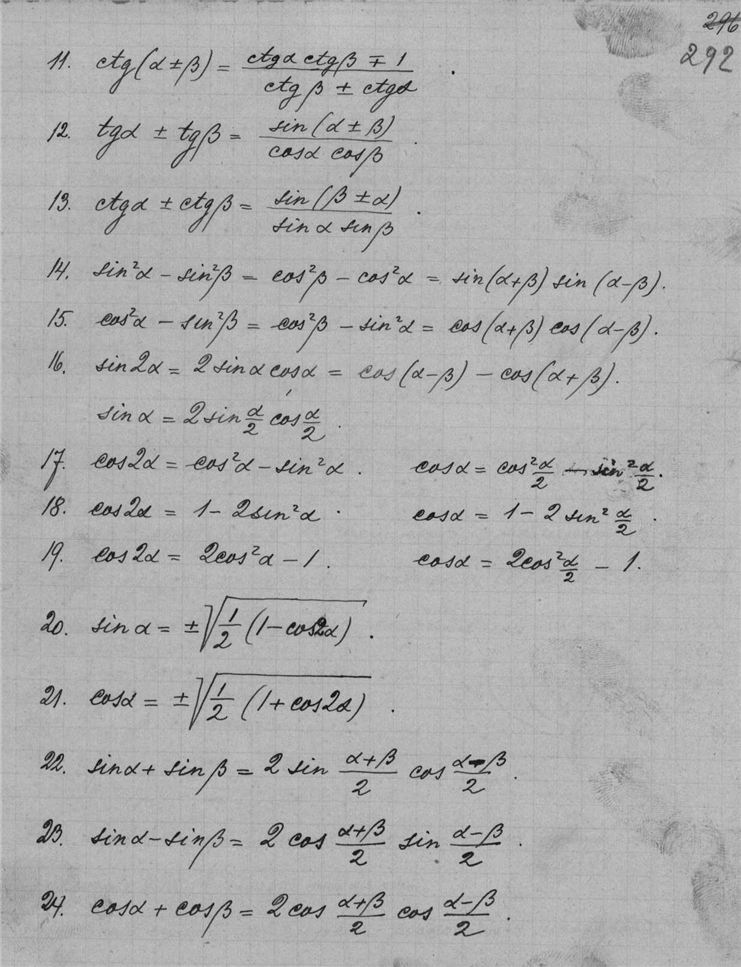 296
292
11. ctg(α±β) = (ctgα ctgβ ∓ 1)/(ctgβ ± ctgα) .
12. tgα ± tgβ = sin(α±β)/(cosα cosβ) .
13. ctgα ± ctgβ = sin(β±α)/(sinα sinβ) .
14. sin²α − sin²β = cos²β − cos²α = sin(α+β) sin(α−β).
15. cos²α − sin²β = cos²β − sin²α = cos(α+β) cos(α−β).
16. sin2α = 2 sinα cosα = cos(α−β) − cos(α+β).
sinα = 2 sin α/2 cos α/2 .
17. cos2α = cos²α − sin²α . cosα = cos² α/2 − sin² α/2 .
18. cos2α = 1 − 2sin²α . cosα = 1 − 2 sin² α/2 .
19. cos2α = 2cos²α − 1 . cosα = 2cos² α/2 − 1.
20. sinα = ±√(1/2 (1−cos2α)) .
21. cosα = ±√(1/2 (1+cos2α)) .
22. sinα + sinβ = 2 sin (α+β)/2 cos (α−β)/2 .
23. sinα − sinβ = 2 cos (α+β)/2 sin (α−β)/2 .
24. cosα + cosβ = 2 cos (α+β)/2 cos (α−β)/2 .